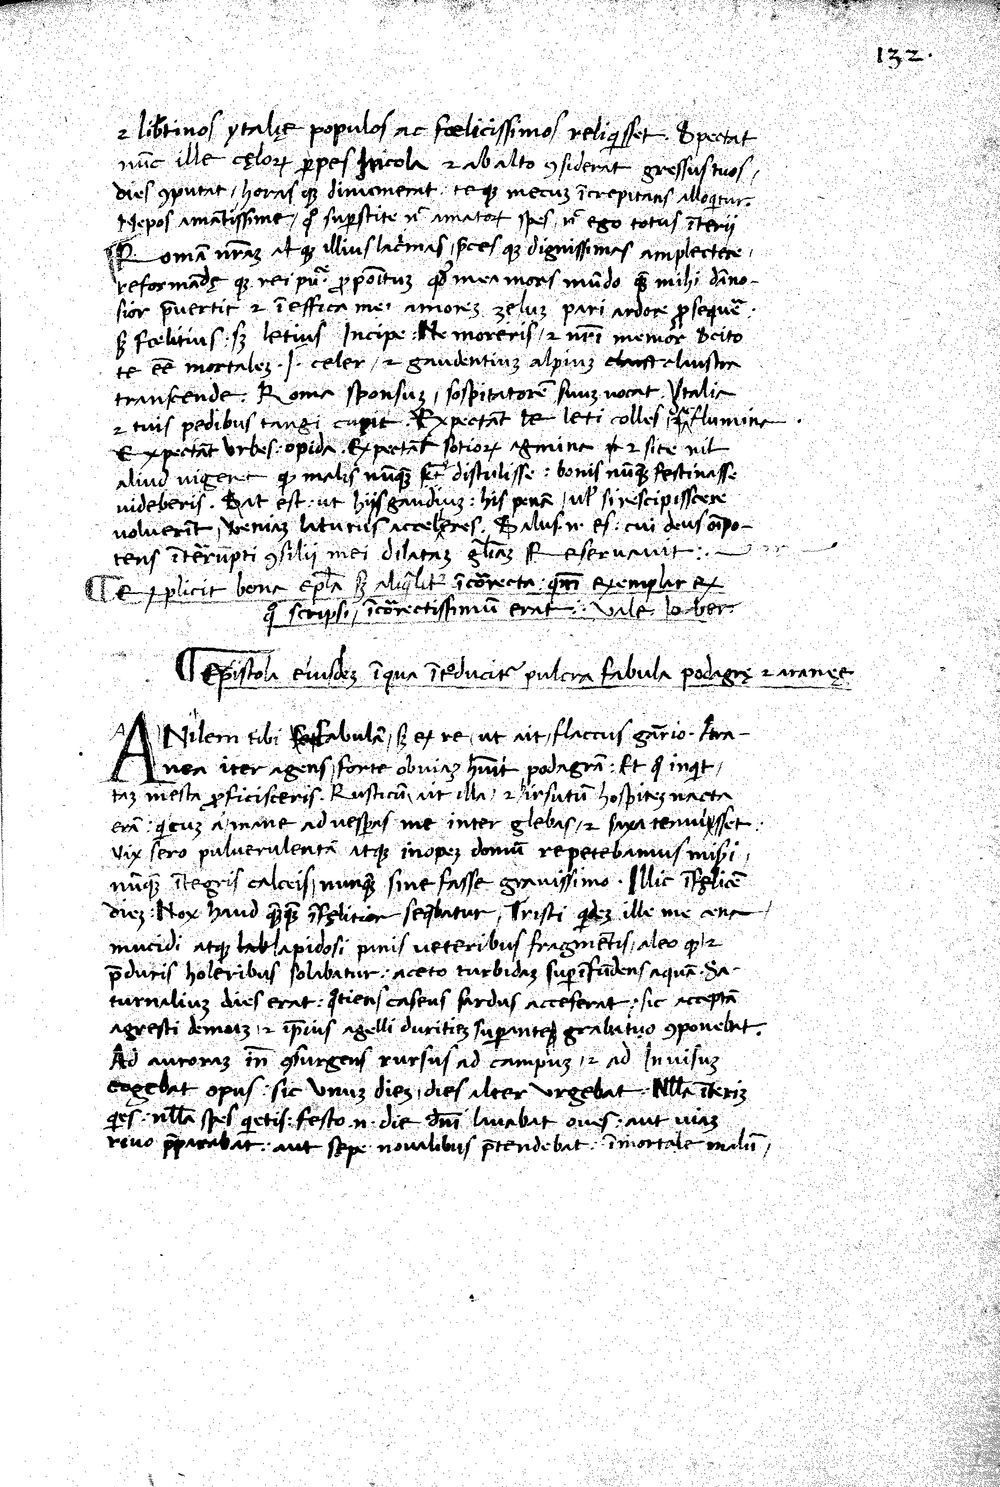 132.
⁊ lib̃tinos ytalię populos ac fœlicissimos reliq̃sset. Spectat
nũc ille cęlorꝝ ꝑpes Incola ⁊ ab alto ꝯsiderat gressus tuos,
dies ꝯputat, horas qꝫ dinumerat. te qꝫ mecuꝫ ĩcrepitans alloq̃tur.
Nepos amãtissime, q̃ suꝑstite nr̃ amatorꝝ spes, nõ ego totus ĩterii
Romã nr̃aꝫ atqꝫ illius lacrĩmas, p̃ces qꝫ dignissimas amplectere,
reformãdę qꝫ rei pu᷑ ꝓpõituꝫ qđ mea mors mũdo quã mihi dãno-
sior p̃uertit ⁊ ĩ effica mei amoreꝫ zeluꝫ pari ardore ꝓsequẽ.
sꝫ fœlitius. sꝫ letius Incipe. Ne moreris, ⁊ nr̃i memor scito
te eẽ mortaleꝫ. I. celer, ⁊ gaudentiuꝫ alpiuꝫ claustra
transcende: Roma sponsuꝫ, sospitatorẽ suuꝫ vocat. Ytalia
⁊ tuis pedibus tangi cupit. Expectãt te leti colles, flumina.
Expectãt Urbes. opida. Expectãt sotiorꝝ agmina ⁊ si te nil
aliud uigeret qꝫ malis nũquã sat distulisse: bonis nũquã festinasse
uideberis. Sat est. ut hijs gaudiuꝫ: his penã, ul̃ si rescipiscere
voluerĩt, veniaꝫ laturus acceleres. Saluꝰ n. es: cui deus oĩpo-
tens ĩterrupti ꝯsilii mei dilataꝫ gl̃iaꝫ Reseruauit:.
Explicit bona epl̃a sꝫ aliq̃lit᷑ ĩcorrecta. qm̃ exemplar ex
q̃ scripsi, ĩcorrectissimũ erat. Vale. Io. ber.
Epistola eiusdeꝫ ĩ qua ĩtroducit᷑ pulcra fabula podagrę ⁊ aranęę
ANilem tibi fabulã, sꝫ ex re, ut ait, flaccus gãrio. Ara-
nea iter agens, forte obuiaꝫ hũit podagrã. Et q̃ inq̃t,
taꝫ mesta ꝓficisceris. Rusticũ, ait illa, ⁊ irsutũ hospiteꝫ nacta
erã: q̃cuꝫ a mane ad uesꝑas me inter glebas, ⁊ saxa tenuisset.
Vix sero pulverulentã atqꝫ inopeꝫ domũ repetebamus mihi,
nũquã ĩtegris calceis, nunquã sine fasse grauissimo. Illic ĩfęlicẽ
dieꝫ. Nox haud quãquã ĩfęlitior seq̃batur, Tristi q̃deꝫ ille me cena,
mucidi atqꝫ lapidosi panis ueteribus fragmẽtis, aleo qꝫ ⁊
p̃duris holeribus solabatur. aceto turbidaꝫ suꝑĩfũdens aquã. Sa-
turnaliuꝫ dies erat: q̃tiens caseus sardus acceserat: sic acceptã
agresti demoꝫ, ⁊ ip̃sius agelli duritieꝫ suꝑante grabatuo ꝯponebat.
Ad auroraꝫ iñ ꝯsurgens rursus ad campuꝫ, ⁊ ad Inuisuꝫ
cogebat opus. sic unuꝫ dieꝫ, dies alter urgebat. Nulla ĩteriꝫ
q̃es. nulla spes q̃etis: festo. n. die dñi lauabat oues. aut uiaꝫ
riuo p̃parabat. aut sępe noualibus p̃tendebat. ĩmortale malũ,